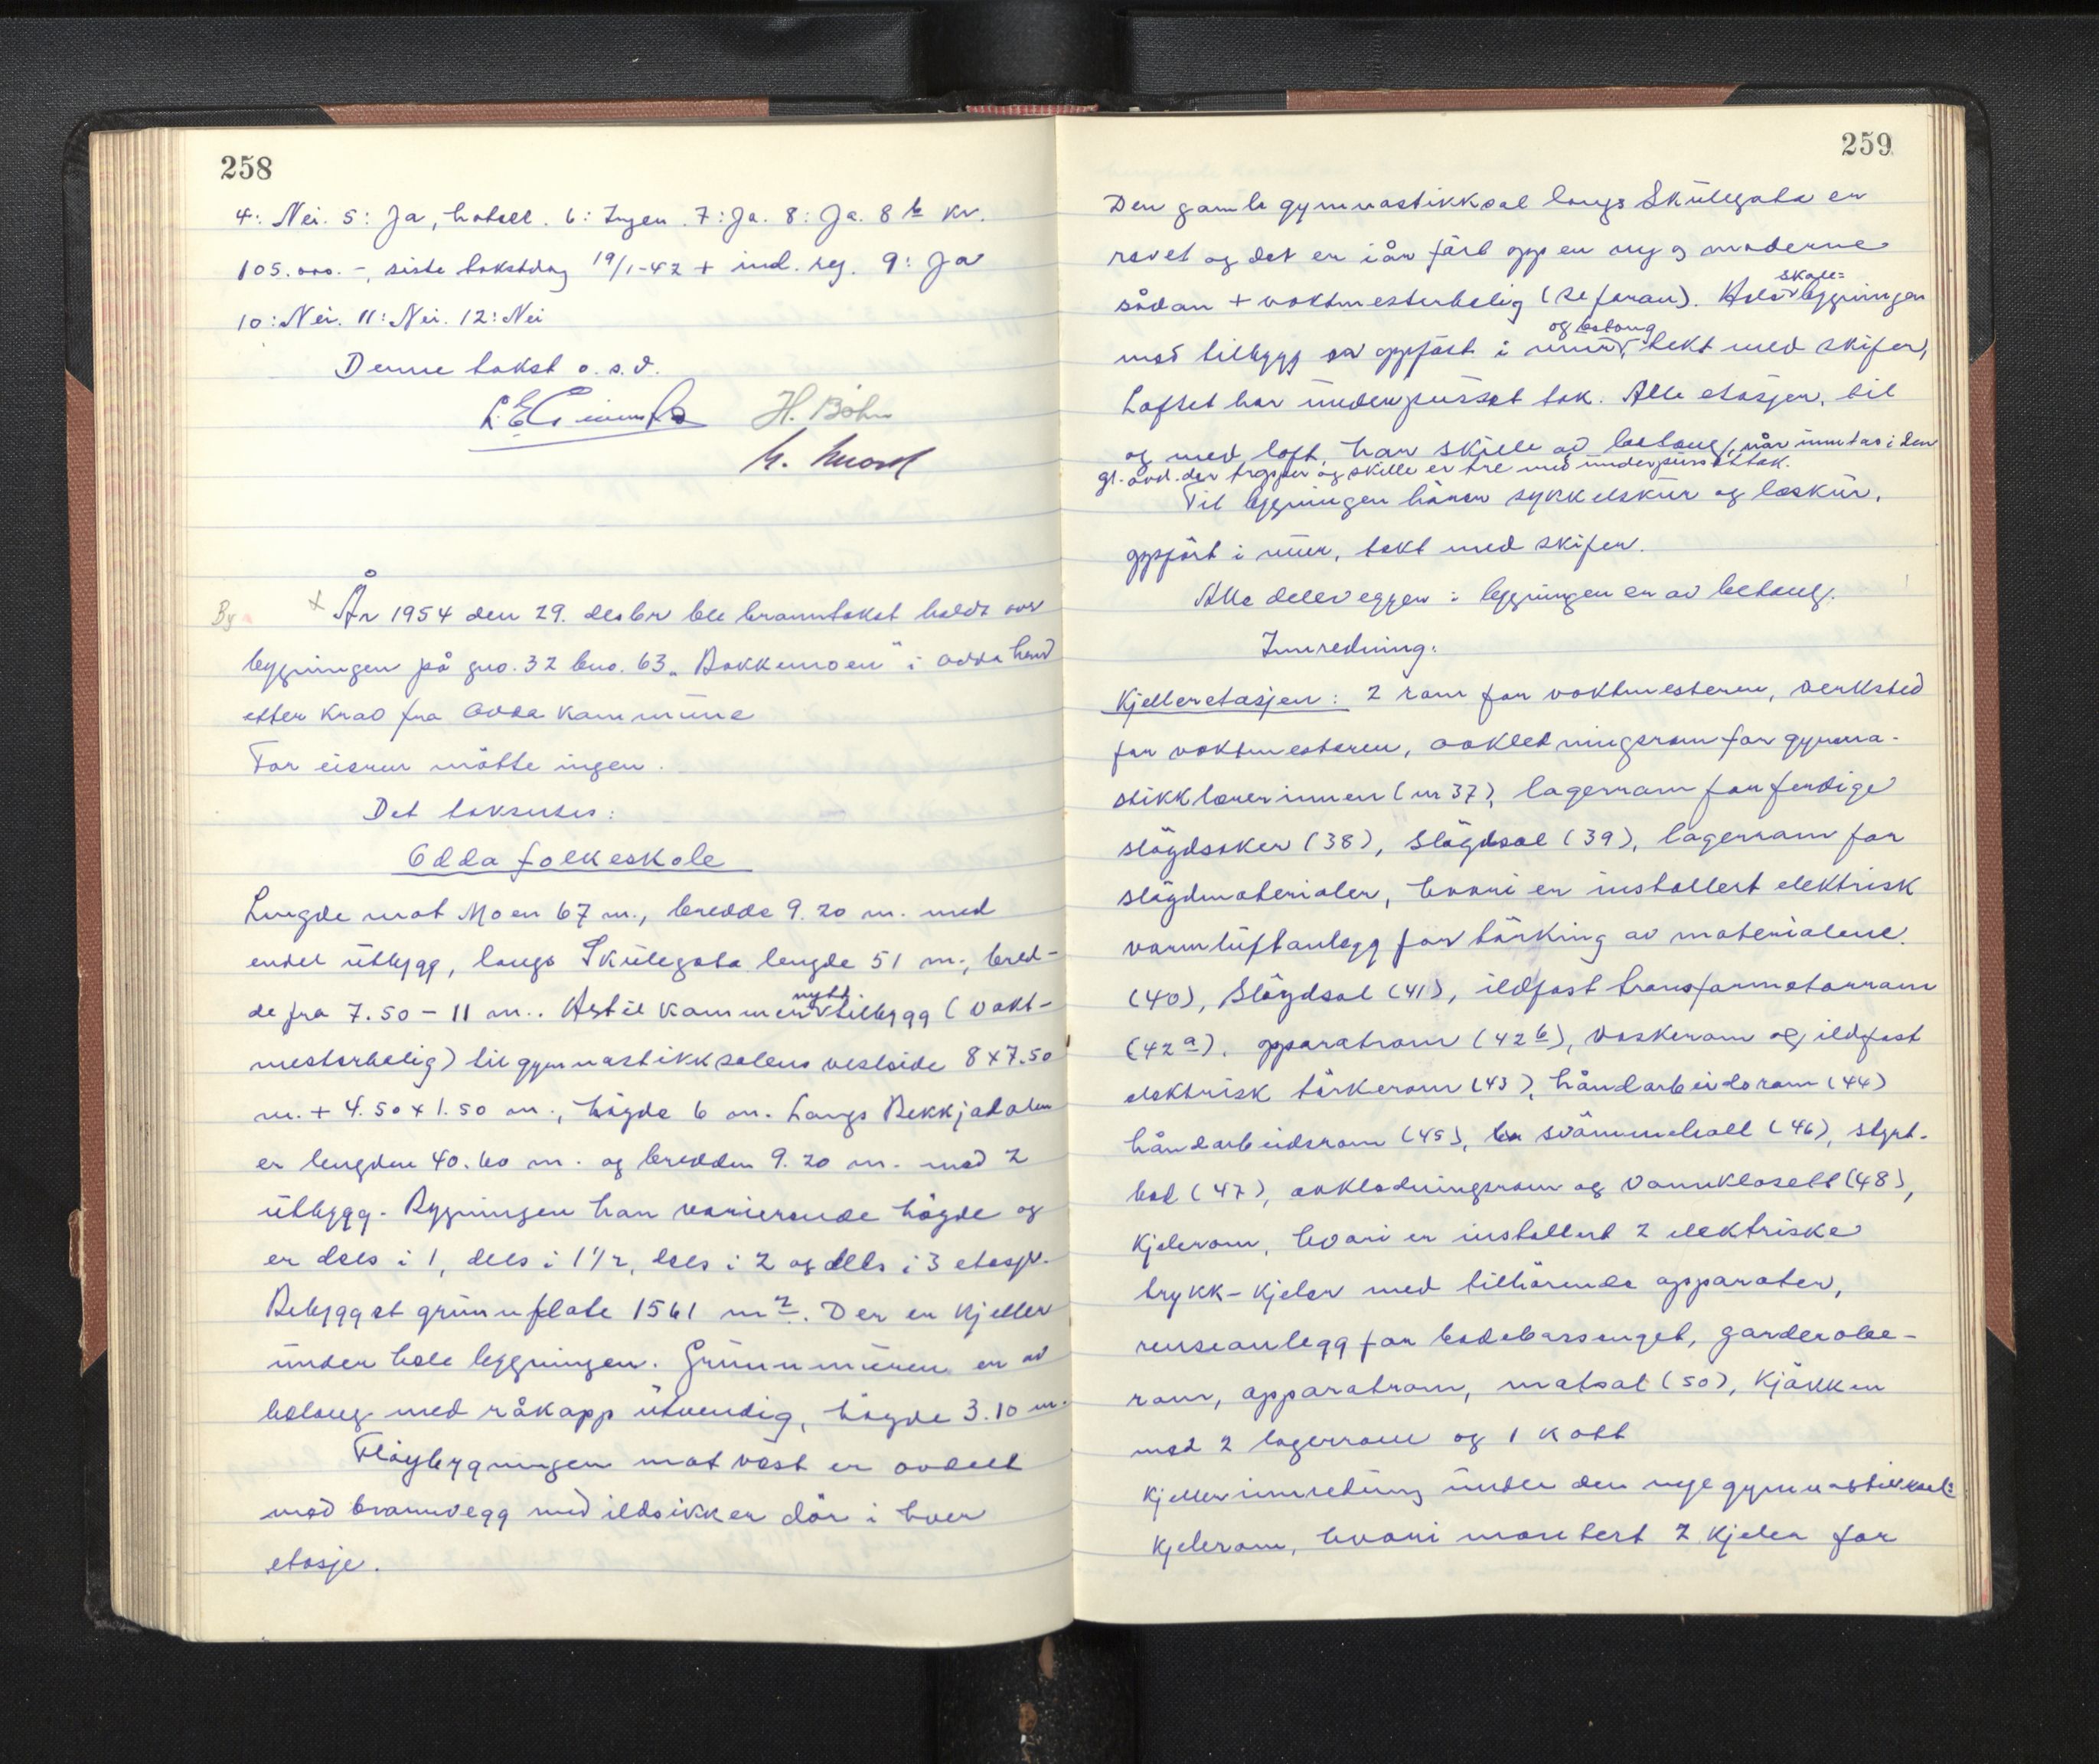 258
4: Nei. 5: Ja, hotell. 6: Ingen. 7: Ja. 8: Ja. 8 b Kr.
105.000.-, siste takstdag 19/1-42 + ind. reg. 9: Ja
10: Nei. 11: Nei. 12: Nei
Denne takst o.s.v.
H. Böhn
By
× År 1954 den 29. desbr ble branntakst holdt over
bygningen på gno. 32 bno. 63 „Bakkemoen" i Odda herad
etter krav fra Odda kommune
For eieren møtte ingen.
Det takseres:
Odda folkeskole
Lengde mot Moen 67 m., bredde 9.20 m. med
endel utbygg, langs Skulegata lengde 51 m., bred-
de fra 7.50 - 11 m.. Hertil kommer nytt tilbygg (vakt-
mesterbolig) til gymnastikksalens vestside 8 x 7.50
m. + 4.50 x 1.50 m., høgde 6 m. Langs Bekkjadalen
er lengden 40.60 m. og bredden 9.20 m. med 2
utbygg. Bygningen har varierende høgde og
er dels i 1, dels i 1 1/2, dels i 2 og dels i 3 etasjer.
Bebygget grunnflate 1561 m2. Der er kjeller
under hele bygningen. Grunnmuren er av
betong med råkapp utvendig, høgde 3.10 m.
Fløybygningen mot vest er avdelt
med brannvegg med ildsikker dør i hver
etasje.
259
Den gamle gymnastikksal langs Skulegata er
revet og det er i år ført opp en ny og moderne
sådan + vaktmesterbolig (se foran). Hele skole=bygningen
med tilbygg er oppført i mur og betong, tekt med skifer,
Loftet har underpusset tak. Alle etasjer, til
og med loft, har skille av betong, når inntas i den
gl. avd. der trapper og skille er tre med underpusset tak.
Til bygningen hører sykkelskur og leskur,
oppført i mur, tekt med skifer.
Alle delevegger i bygningen er av betong.
Innredning:
Kjelleretasjen: 2 rom for vaktmesteren, verksted
for vaktmesteren, avkledningsrom for gymna-
stikklærerinnen (nr 37), lagerrom for ferdige
sløydsaker (38), Sløydsal (39), lagerrom for
sløydmaterialer, hvori er installert elektrisk
varmluftanlegg for tørking av materialene.
(40), Sløydsal (41), ildfast transformatorrom
(42 a). apparatrom (42 b), vaskerom og ildfast
elektrisk tørkerom (43), håndarbeidsrom (44)
håndarbeidsrom (45), svømmehall (46), styrt-
bad (47), avkledningsrom og vannklosett (48),
Kjelerom, hvori er installert 2 elektriske
trykk-kjeler med tilhørende apparater,
renseanlegg for badebassenget, garderobe-
rom, apparatrom, matsal (50), kjøkken
med 2 lagerrom og 1 kott
Kjellerinnredning under den nye gymnastikksal:
Kjelerom, hvori montert 2 kjeler for